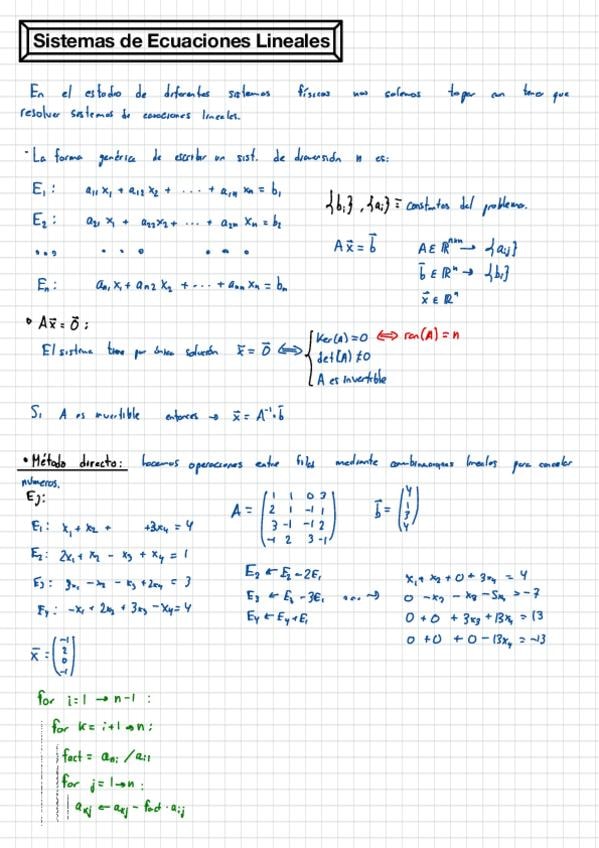 Sistemas de Ecuaciones Lineales
En el estudio de diferentes sistemas físicos nos solemos topar con tener que
resolver sistemas de ecuaciones lineales.
· La forma genérica de escribir un sist. de dimensión n es:
E₁: a₁₁ x₁ + a₁₂ x₂ + ... + a₁ₙ xₙ = b₁
{bᵢ}, {aᵢ} ≡ constantes del problema.
E₂: a₂₁ x₁ + a₂₂ x₂ + ... + a₂ₙ xₙ = b₂
Ax⃗ = b⃗ A ∈ ℝⁿˣⁿ → {aᵢⱼ}
... ... ...
b⃗ ∈ ℝⁿ → {bᵢ}
Eₙ: aₙ₁ x₁ + aₙ₂ x₂ + ... + aₙₙ xₙ = bₙ
x⃗ ∈ ℝⁿ
• Ax⃗ = 0⃗:
El sistema tiene por única solución x⃗ = 0⃗ ⇔ { Ker(A) = 0 ⇔ ran(A) = n
det(A) ≠ 0
A es invertible
Si A es invertible entonces → x⃗ = A⁻¹·b⃗
• Método directo: hacemos operaciones entre filas mediante combinaciones lineales para cancelar
números.
Ej:
A = (1 1 0 3
2 1 -1 1
3 -1 -1 2
-1 2 3 -1)
b⃗ = (4
1
3
4)
E₁: x₁ + x₂ + +3x₄ = 4
E₂: 2x₁ + x₂ - x₃ + x₄ = 1
E₃: 3x₁ - x₂ - x₃ + 2x₄ = 3
E₄: -x₁ + 2x₂ + 3x₃ - x₄ = 4
E₂ ← E₂ - 2E₁
E₃ ← E₃ - 3E₁ ... →
E₄ ← E₄ + E₁
x₁ + x₂ + 0 + 3x₄ = 4
0 - x₂ - x₃ - 5x₄ = -7
0 + 0 + 3x₃ + 13x₄ = 13
0 + 0 + 0 - 13x₄ = -13
x⃗ = (-1
2
0
-1)
for i = 1 → n-1 :
for k = i+1 → n :
fact = /
for j = 1 → n :
aₖⱼ ← aₖⱼ - fact · aᵢⱼ